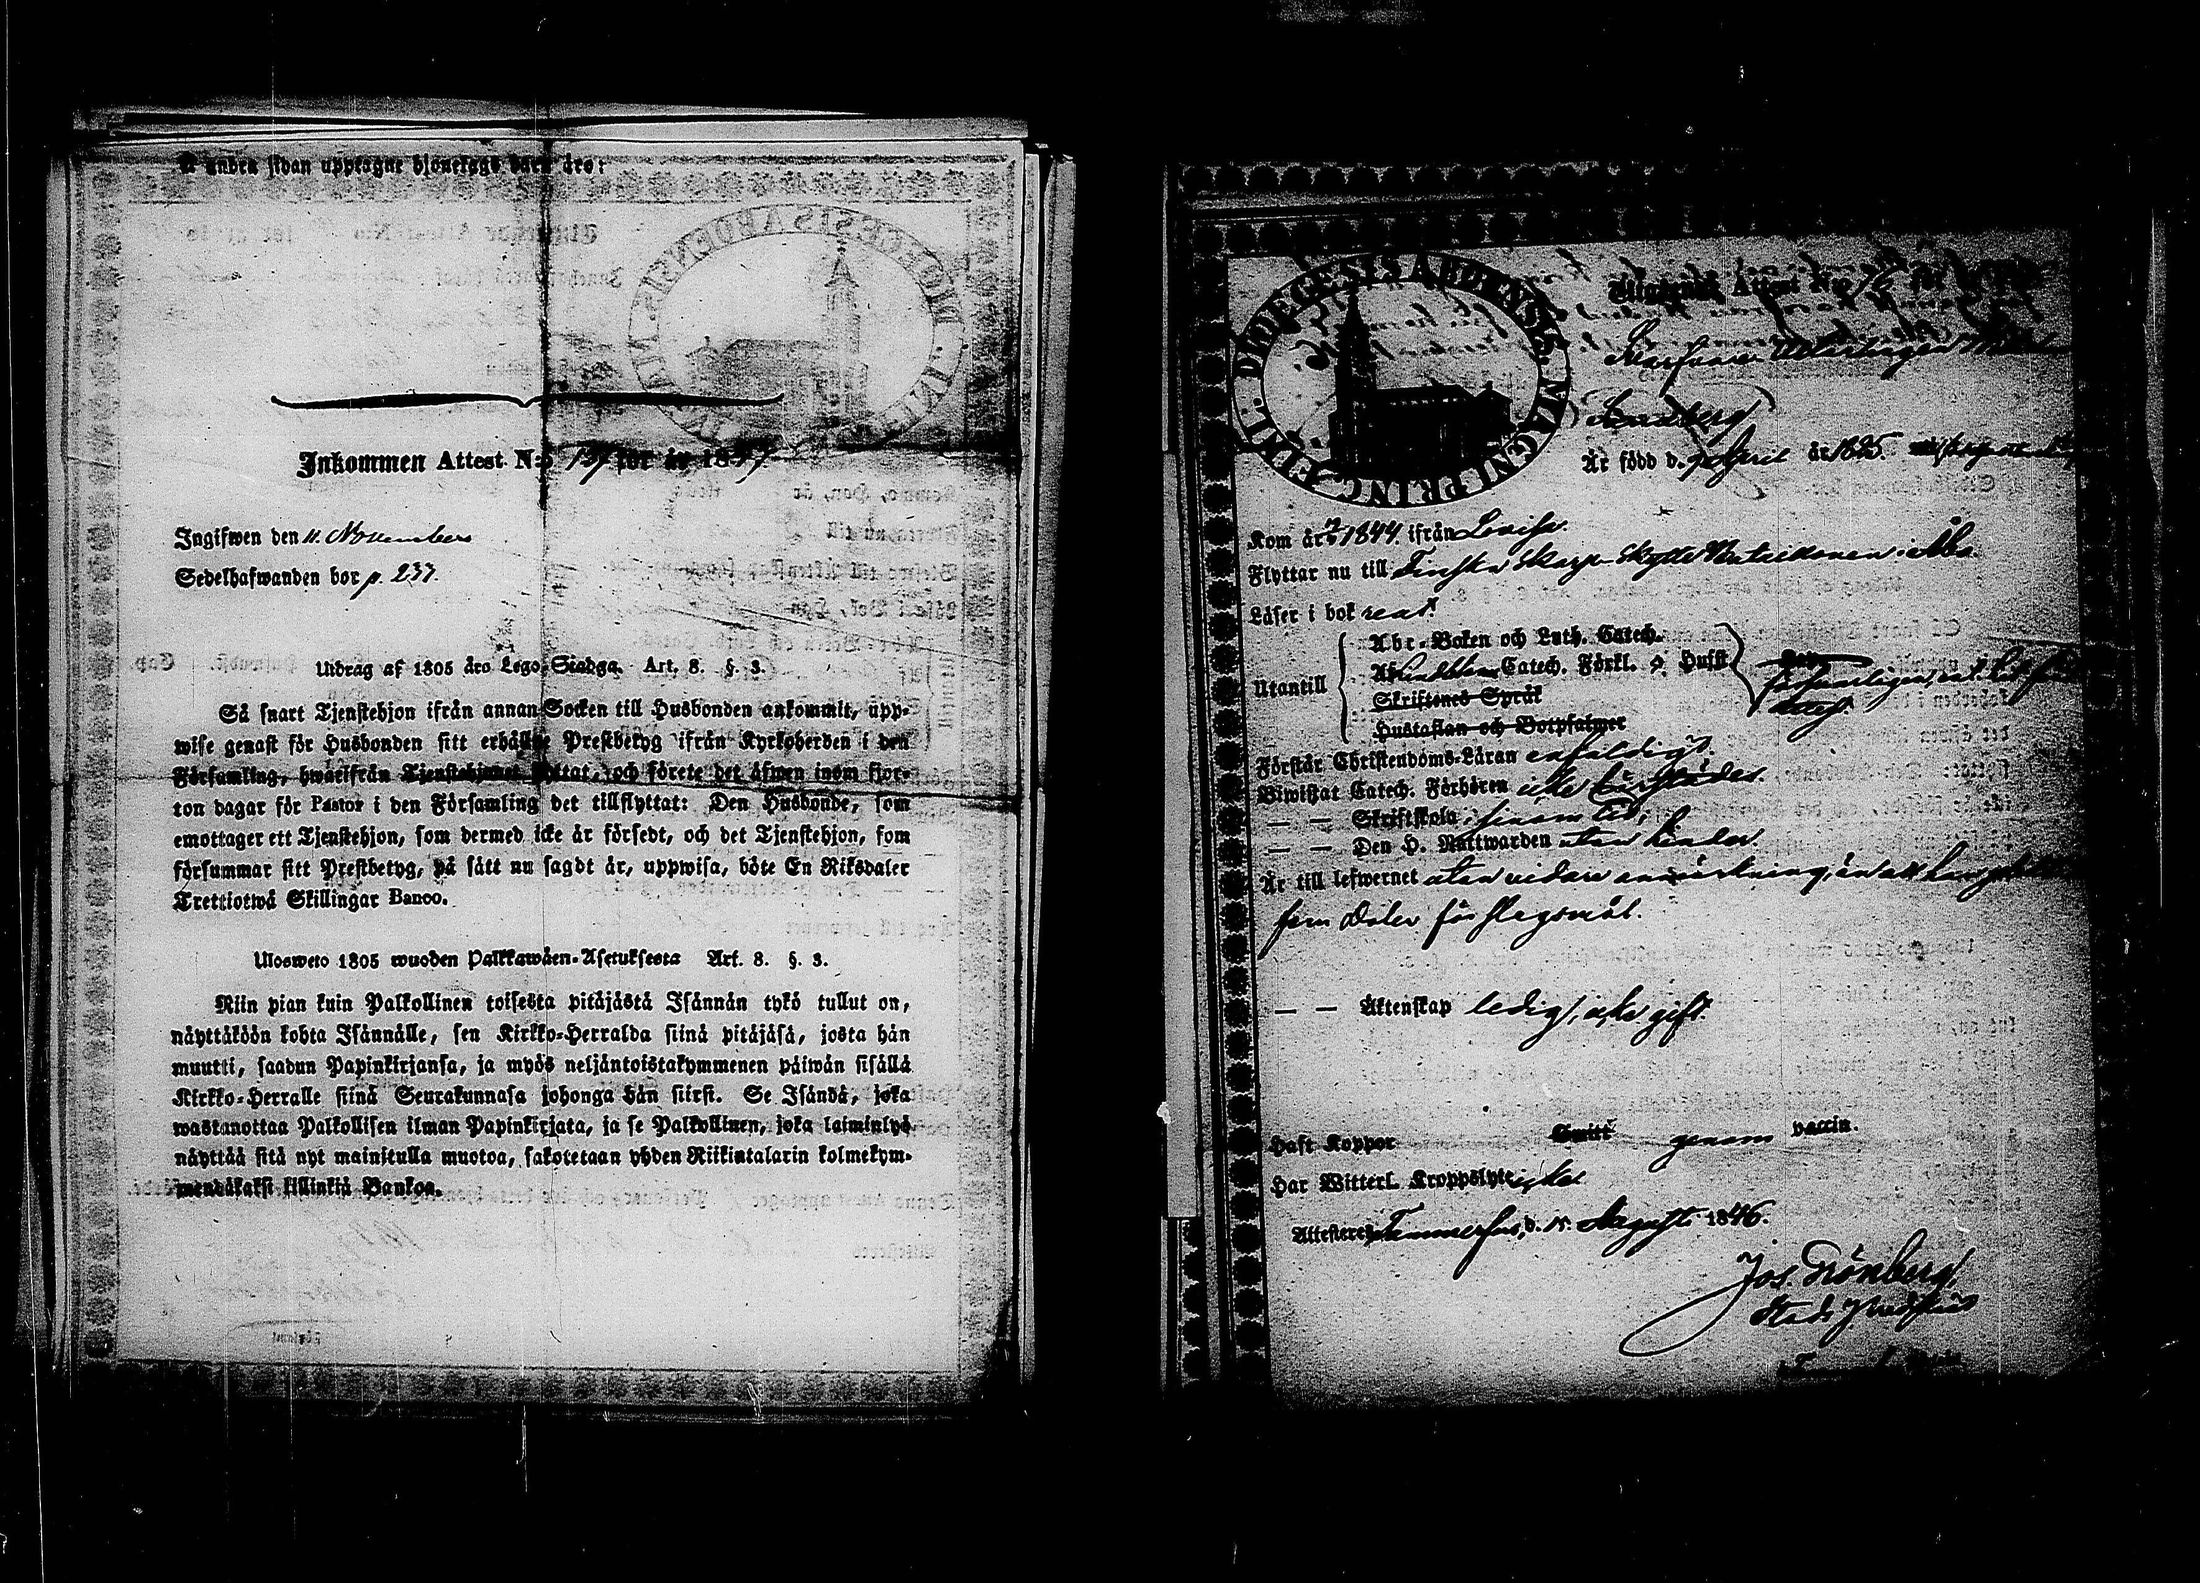 å andra sidan upptagne hjonelags barn äro:
Inkommen Attest N:o 137 för år 1847
Ingifwen den 11. November
Sedelhafwanden bor p. 237.
Utdrag af 1805 års Lego-Stadga. Art. 8. §. 3.
Så snart Tjenstehjon ifrån annan Socken till Husbonden ankommit, upp-
wise genast för Husbonden sitt erhållne Prestbetyg ifrån Kyrkoherden i den
Församling, hwarifrån Tjenstehjonet flyttat, och förete det äfwen inom fjor-
ton dagar för Pastor i den Församling det tillflyttat: Den Husbonde, som
emottager ett Tjenstehjon, som dermed icke är försedt, och det Tjenstehjon, som
försummar sitt Prestbetyg, på sätt nu sagdt är, uppwisa, böte En Riksdaler
Trettiotwå Skillingar Banco.
Ulosweto 1805 wuoden Palkkawäen-Asetuksesta Art. 8. §. 3.
Niin pian kuin Palkollinen toisesta pitäjästä Isännän tykö tullut on,
näyttäköön kohta Isännälle, sen Kirkko-Herralda siinä pitäjäsä, josta hän
muutti, saadun Papinkirjansa, ja myös neljäntoistakymmenen päiwän sisällä
Kirkko-Herralle siinä Seurakunnasa johonga hän siirsi. Se Isändä, joka
wastanottaa Palkollisen ilman Papinkirjata, ja se Palkollinen, joka laiminlyö
näyttää sitä nyt mainitulla muotoa, sakotetaan yhden Riikintalarin kolmekym-
mendäkaksi killinkiä Bankoa.
DIOECESIS ABOENSIS. MAGNI PRINC. FINL.
Utgifwen Attest N:o 76 för
Lundberg
Är född d. 7 April år 1825.
Kom år 1844 ifrån Lovisa.
Flyttar nu till Finska Skarp-Skytte Bataillonen i Åbo.
Läser i bok rent.
Utantill
Abc-Boken och Luth. Catech.
Catech. Förkl. o. Husst
Skriftenes Språk
Hustaflan och Botpsalmer
Förstår Christendoms-Läran enfaldigt.
Biwistat Catech. Förhören icke härstädes
— — Skriftskola i sinom tid;
— — Den H. Nattwarden utan hinder.
Är till lefwernet utan vidare anmärkning, än att han
fem Daler för slagsmål.
— — Äktenskap ledig, icke gift.
Haft Koppor Smitt genom vaccin.
Har Witterl. Kroppslyte icke
Attesteres Tammerfors, d. 15. Augusti 1846.
Jos. Grönberg,